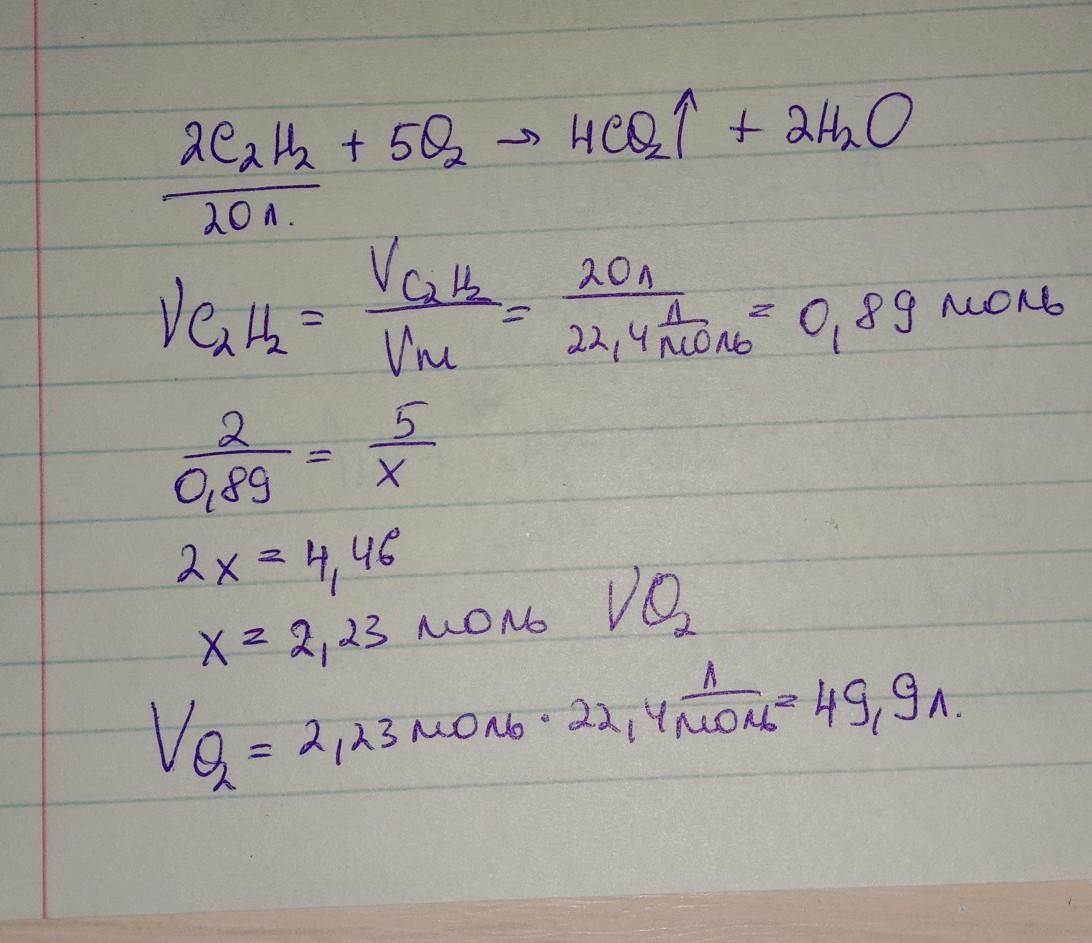 2C₂H₂ + 5O₂ → 4CO₂↑ + 2H₂O
20 л.
νC₂H₂ = V C₂H₂ / Vm = 20л / 22,4 л/моль = 0,89 моль
2/0,89 = 5/x
2x = 4,46
x = 2,23 моль νO₂
VO₂ = 2,23 моль · 22,4 л/моль = 49,9 л.